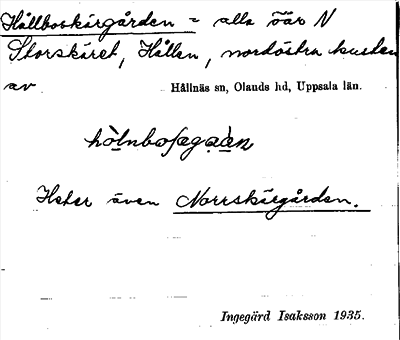 Hållboskärgården = alla öar N
Storskäret, Hållen, nordöstra kusten
av Hållnäs sn, Olands hd, Uppsala län.
Heter även Norrskärgården.
Ingegärd Isaksson 1935.